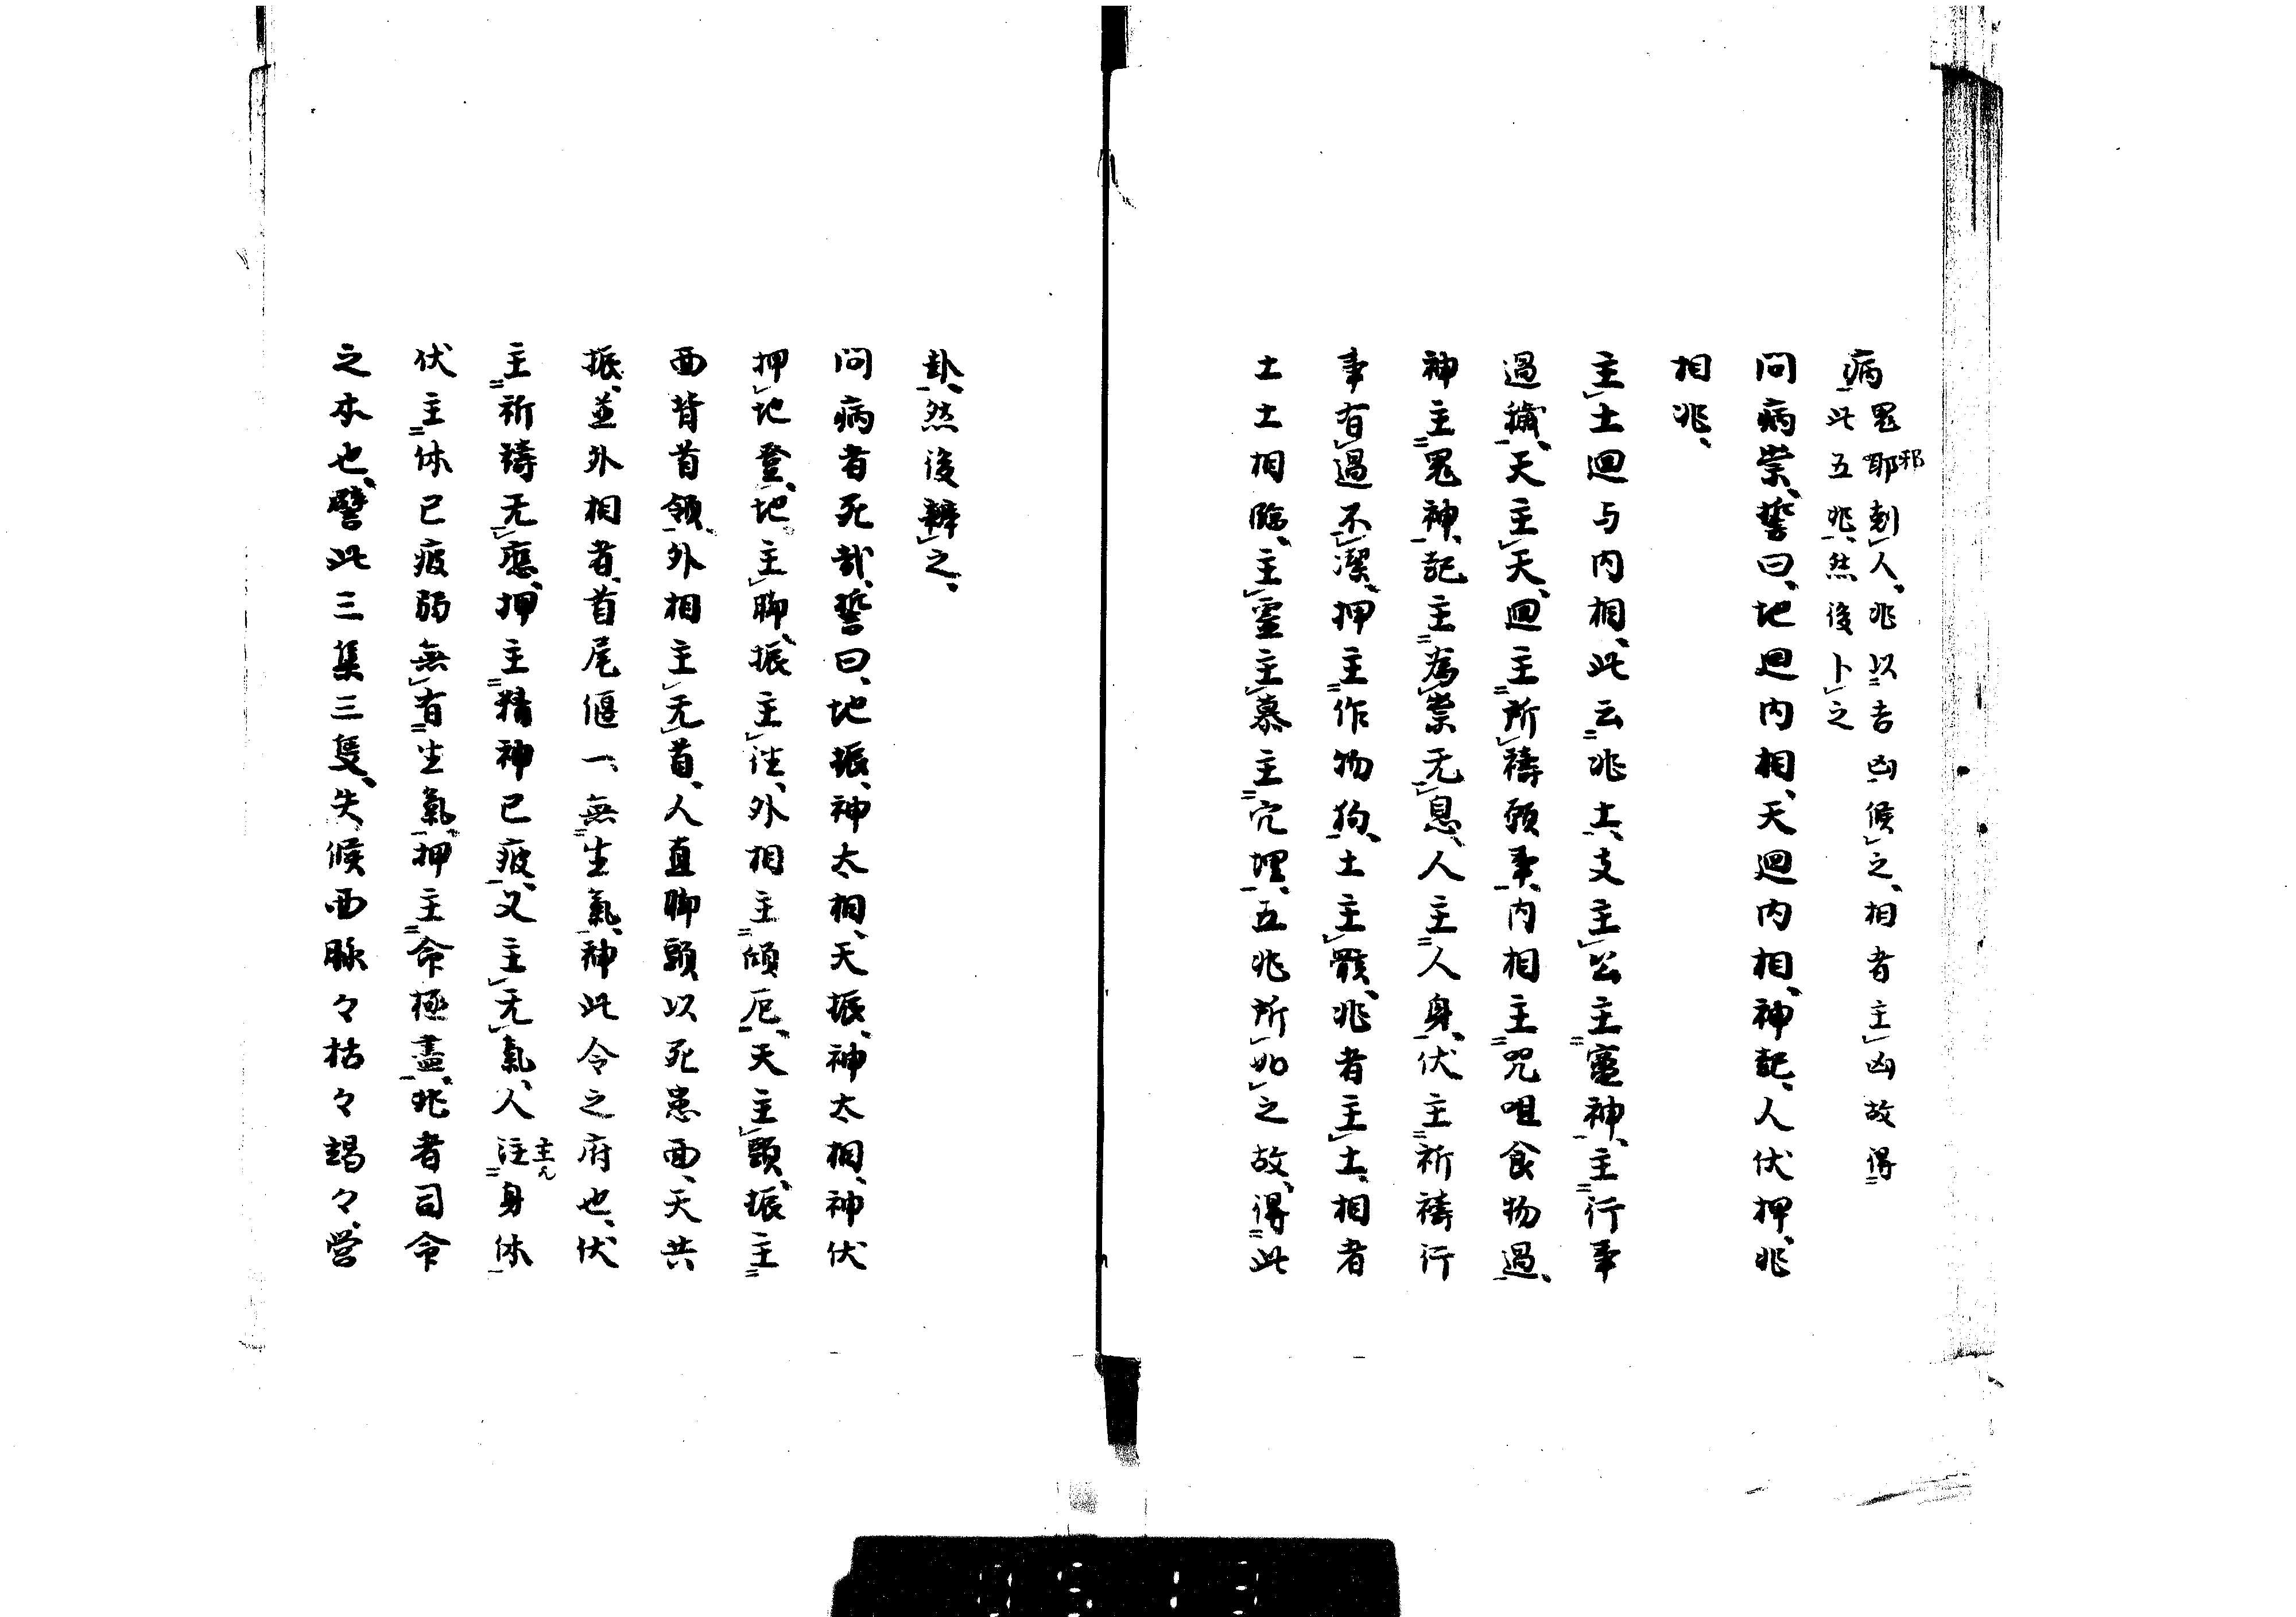 病鬼耶刻人、兆以吉凶候之、相者主凶故得
邪
此五兆、然後卜之
問病祟、誓曰、地迴内相、天迴内相、神起、人伏押、兆
相兆、
主土迴与内相、此云兆土、支主公主竈神、主行事
過 、天主天、迴主所禱願事、内相主咒咀食物過、
神主鬼神、起主為祟无息、人主人身、伏主祈禱行
事有過不潔、押主作物狗、土主 、兆者主土、相者
土土相臨、主靈主墓主穴埋、五兆所如之故、得此
卦、然後辨之、
問病者死哉、誓曰、地振、神太相、天振、神太相、神伏
押地登、地主脚、振主往、外相主傾厄、天主頭、振主
西背首領、外相主无首、人直脚頭以死患西、天共
振、並外相者、首尾偃一、無生氣、神此令之府也、伏
主祈禱无應、押主精神已疲、又主无氣、人注身体
主几
伏主体已疲弱無有生氣、押主命極盡、兆者司命
之本也、譬此三集三隻、失候西脉々枯々竭々、営